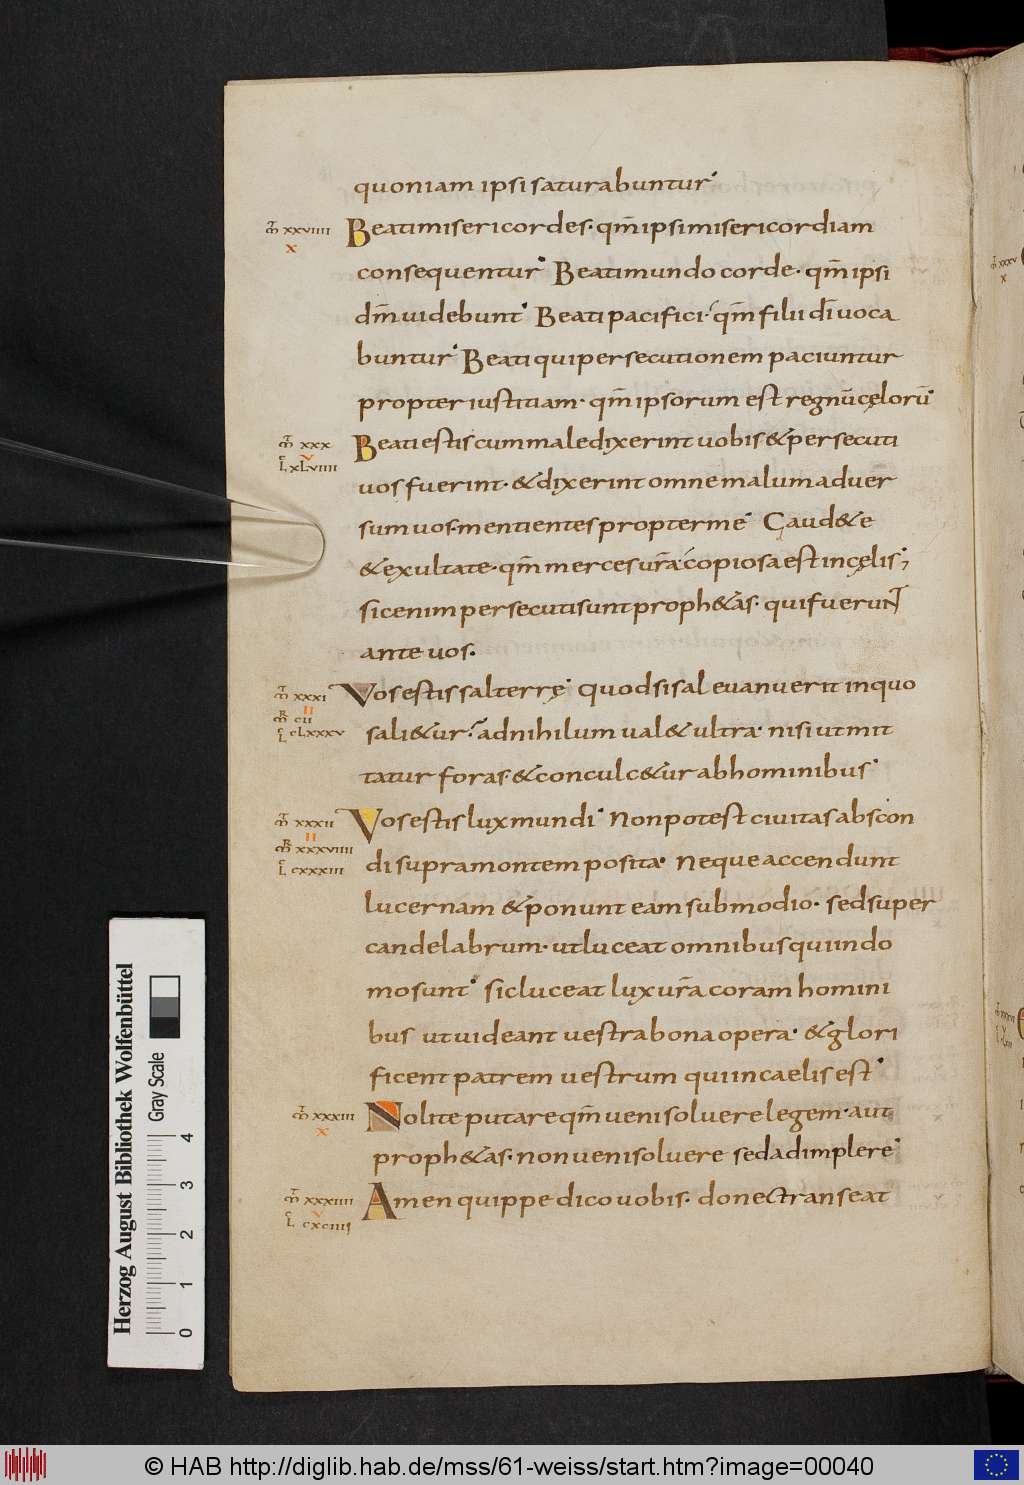 quoniam ipsi saturabuntur
m̄ xxviiii Beati misericordes· qm̄ ipsi misericordiam
x
consequentur Beati mundo corde· qm̄ ipsi
dm̄ uidebunt Beati pacifici· qm̄ filii dī uoca
buntur Beati qui persecutionem paciuntur
propter iustitiam· qm̄ ipsorum est regnū cęlorū
m̄ xxx Beati estis cum maledixerint uobis & persecuti
v
L xLviiii
uos fuerint· & dixerint omne malum aduer
sum uos· mentientes propter me Gaud&e
& exultate· qm̄ merces ur̄a copiosa est in cęlis;
sic enim persecuti sunt proph&as· qui fuerunt
ante uos.
m̄ xxxi Vos estis sal terrę quod si sal euanuerit in quo
ii
m̄ cii
L cLxxxv
sali&ur? ad nihilum ual& ultra· nisi ut mit
tatur foras· & conculc&ur ab hominibus
m̄ xxxii Vos estis lux mundi Non potest ciuitas abscon
ii
m̄ xxxviiii
L cxxxiii
di supra montem posita· Neque accendunt
lucernam & ponunt eam sub modio· sed super
candelabrum· ut luceat omnibus qui in do
mo sunt sic luceat lux ur̄a coram homini
bus ut uideant uestra bona opera· & glori
ficent patrem uestrum qui in caelis est
m̄ xxxiii Nolite putare qm̄ ueni soluere legem· aut
x
proph&as· non ueni soluere sed adimplere
m̄ xxxiiii Amen quippe dico uobis· donec transeat
v
L cxciiii
Herzog August Bibliothek Wolfenbüttel
Gray Scale
0 1 2 3 4
© HAB http://diglib.hab.de/mss/61-weiss/start.htm?image=00040